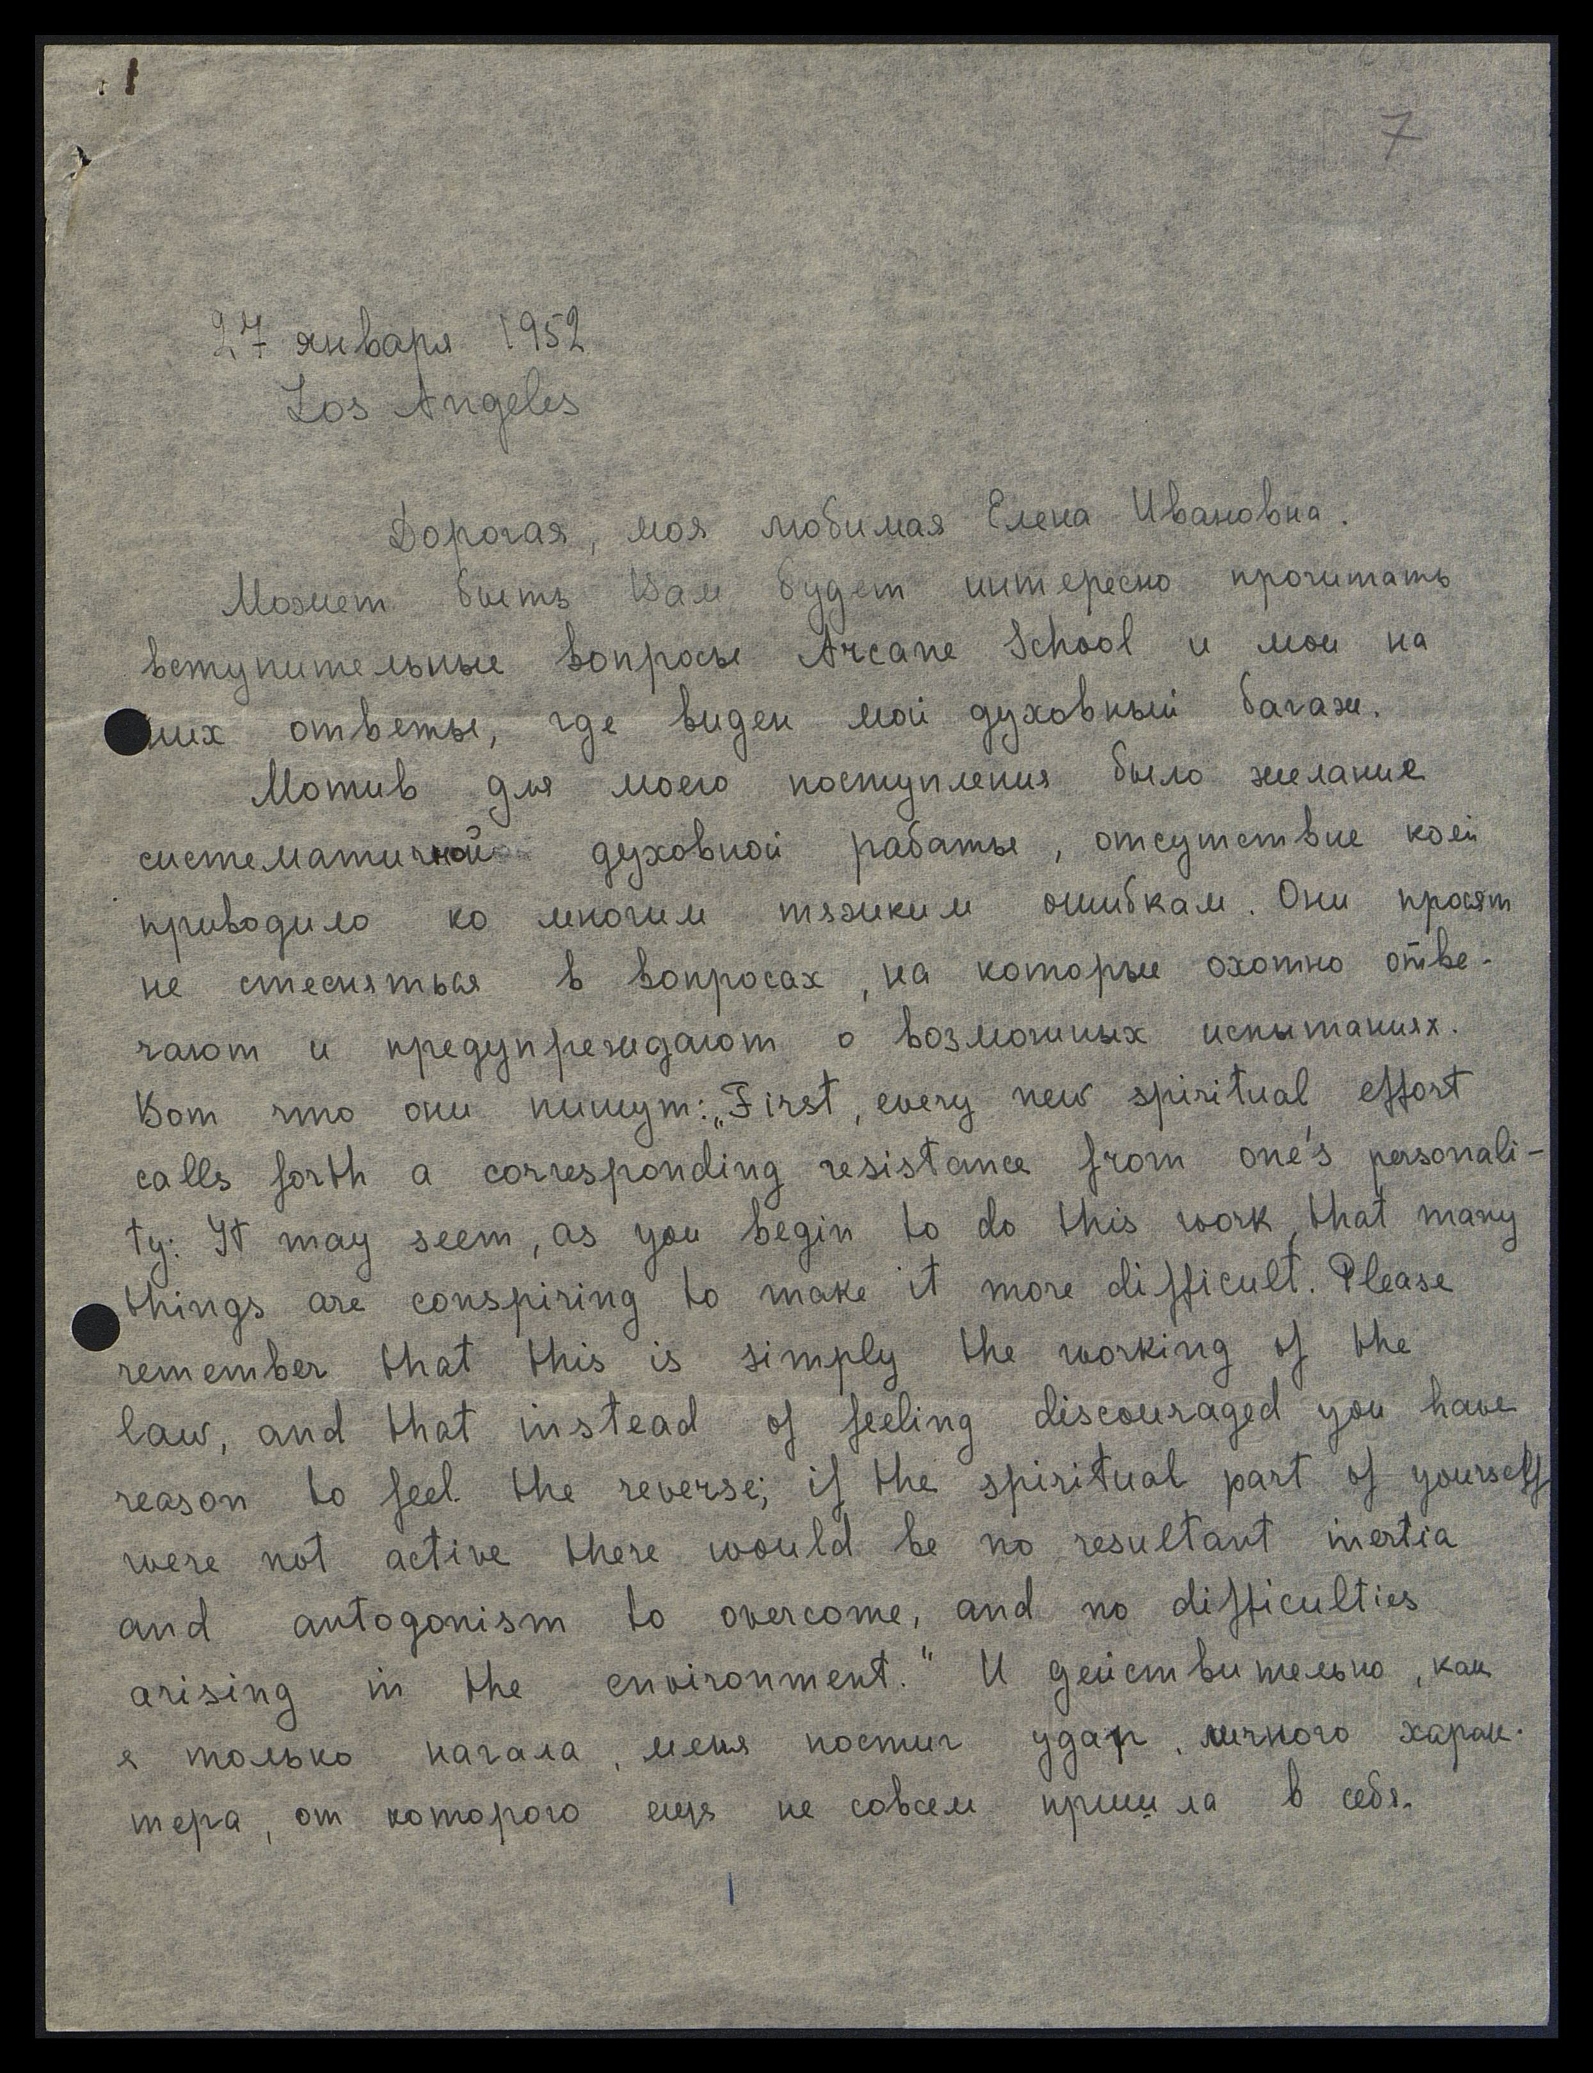 7
27 января 1952
Los Angeles
Дорогая, моя любимая Елена Ивановна.
Может быть Вам будет интересно прочитать
вступительные вопросы Arcane School и мои на
них ответы, где виден мой духовный багаж.
Мотив для моего поступления было желание
систематичной духовной работы, отсутствие коей
приводило ко многим тяжким ошибкам. Они просят
не стесняться в вопросах, на которые охотно отве-
чают и предупреждают о возможных испытаниях.
Вот что они пишут: „First, every new spiritual effort
calls forth a corresponding resistance from one's personali-
ty: It may seem, as you begin to do this work, that many
things are conspiring to make it more difficult. Please
remember that this is simply the working of the
law, and that instead of feeling discouraged you have
reason to feel the reverse; if the spiritual part of yourself
were not active there would be no resultant inertia
and antogonism to overcome, and no difficulties
arising in the environment." И действительно, как
я только начала, меня постиг удар, личного харак-
тера, от которого еще не совсем пришла в себя.
1